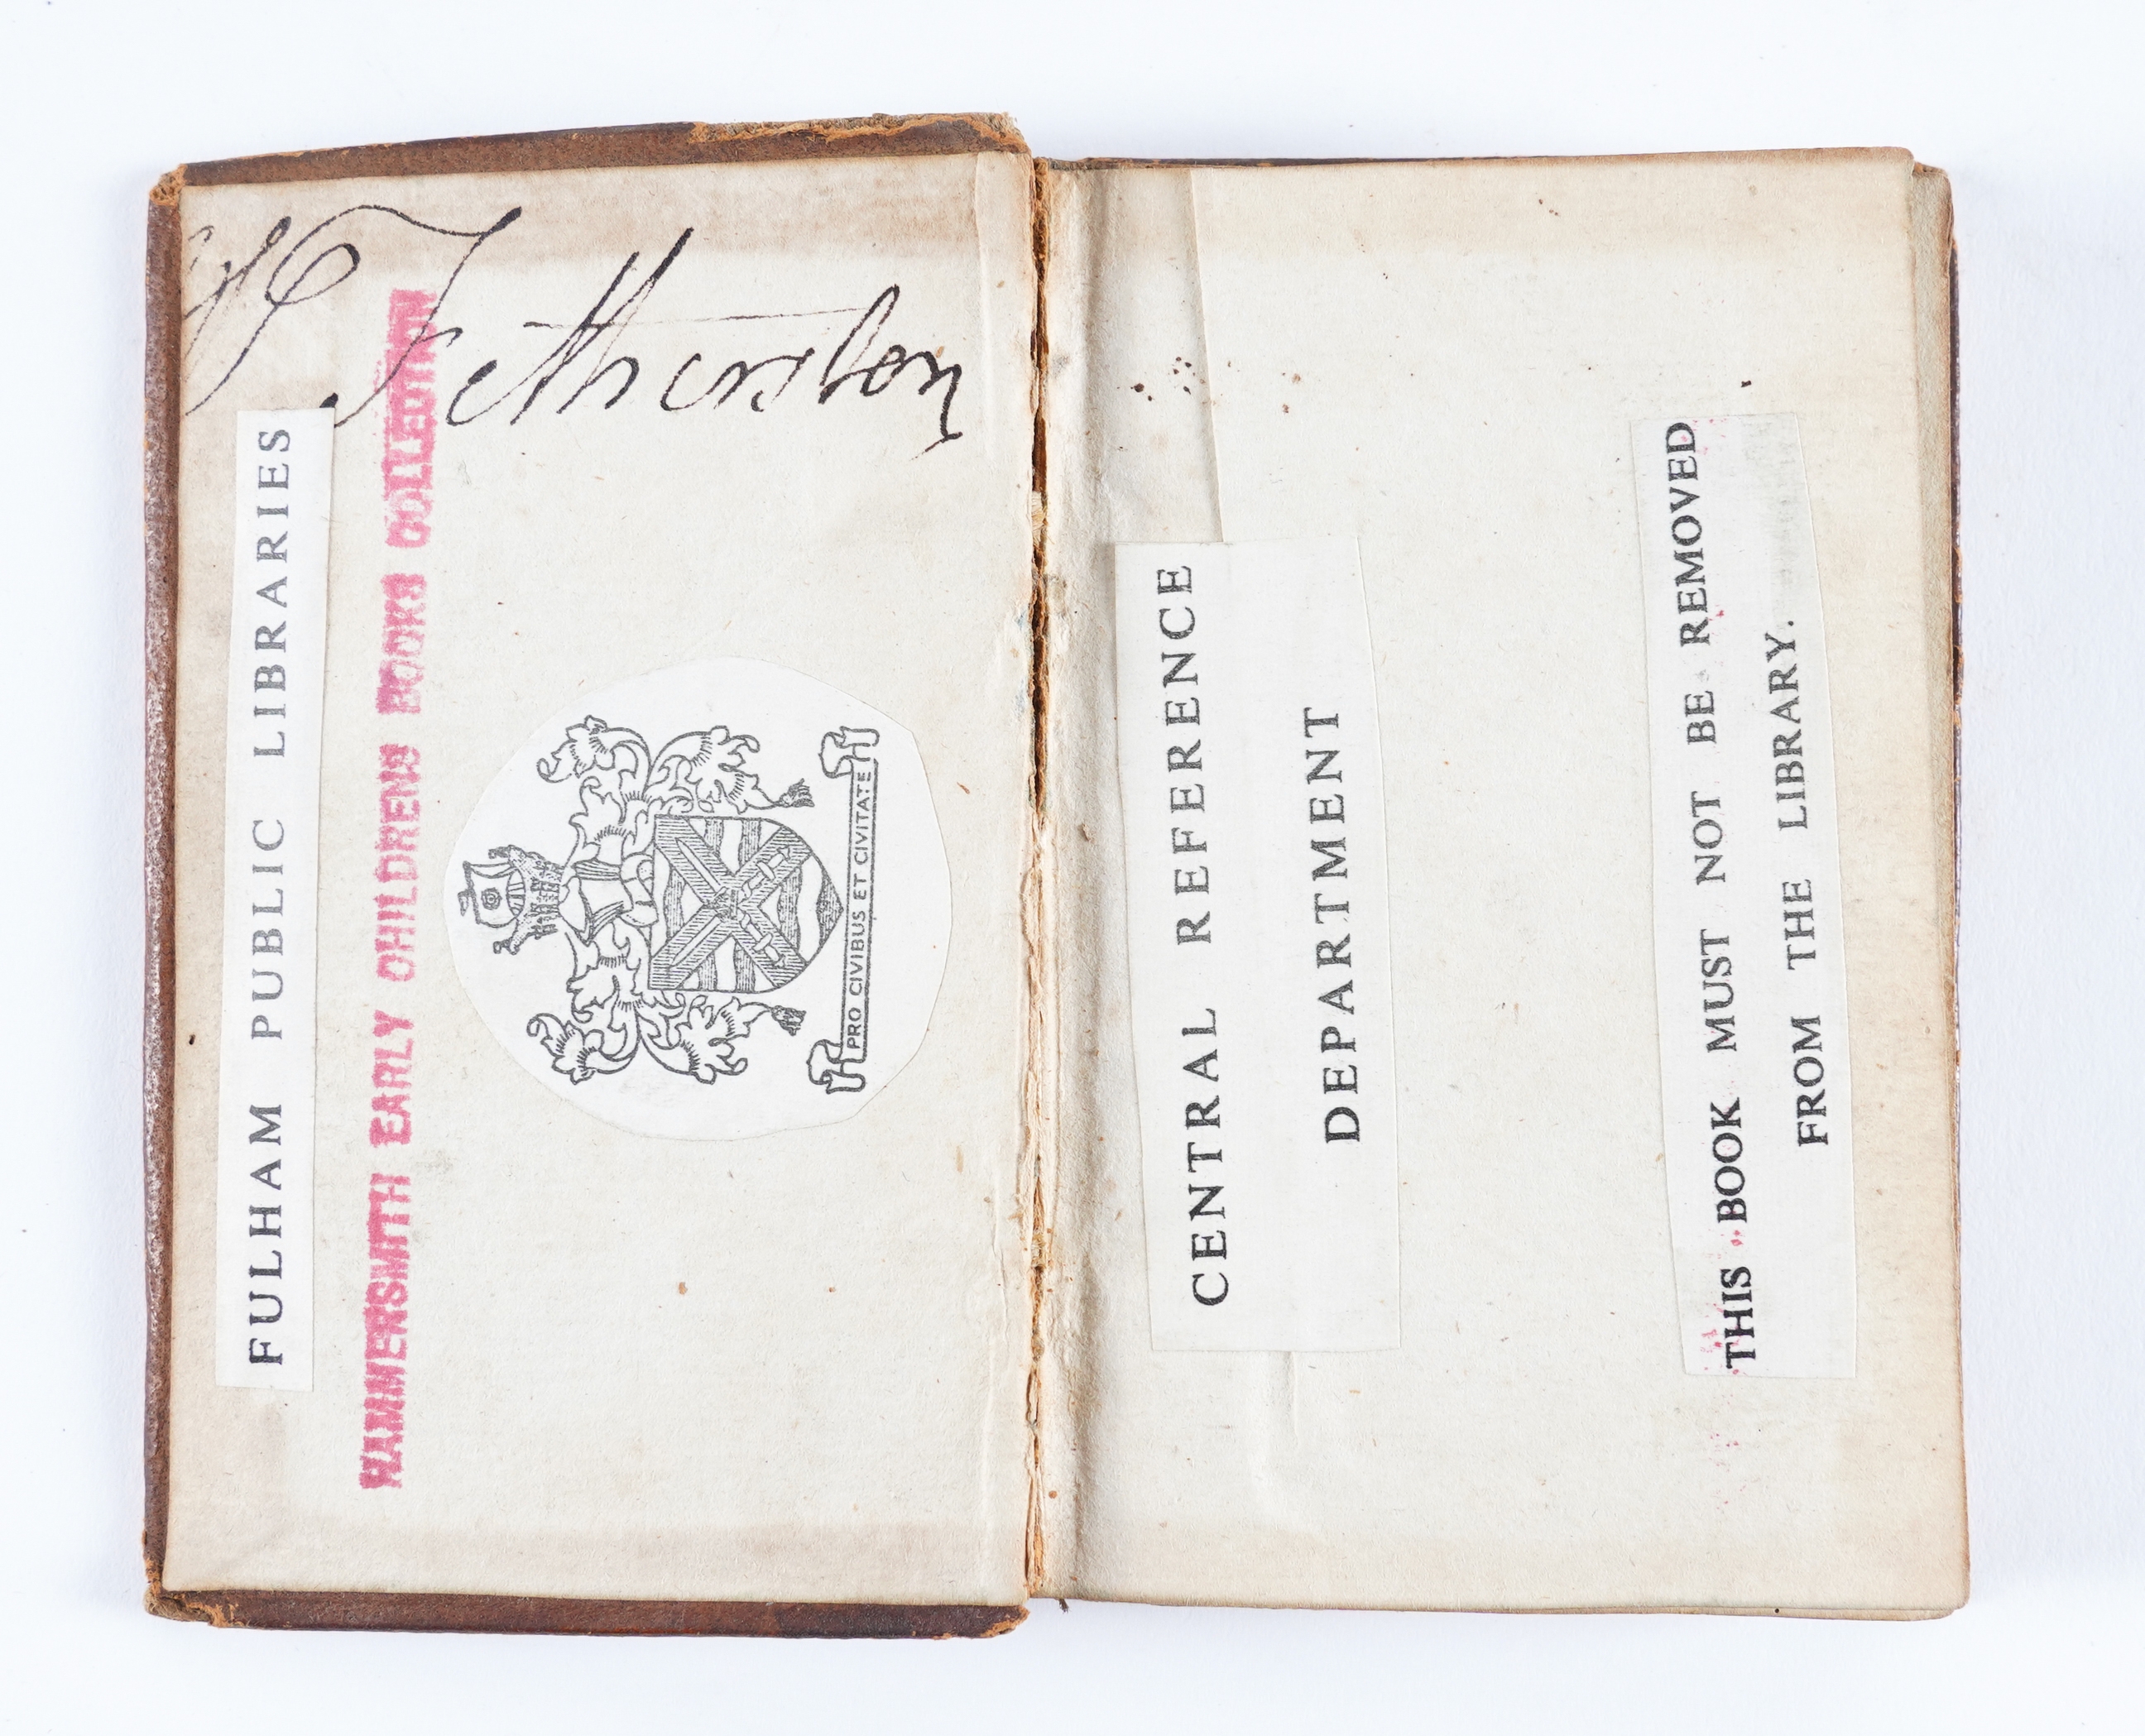 Fetherston
FULHAM PUBLIC LIBRARIES
HAMMERSMITH EARLY CHILDRENS BOOKS COLLECTION
PRO CIVIBUS ET CIVITATE
CENTRAL REFERENCE
DEPARTMENT
THIS BOOK MUST NOT BE REMOVED
FROM THE LIBRARY.